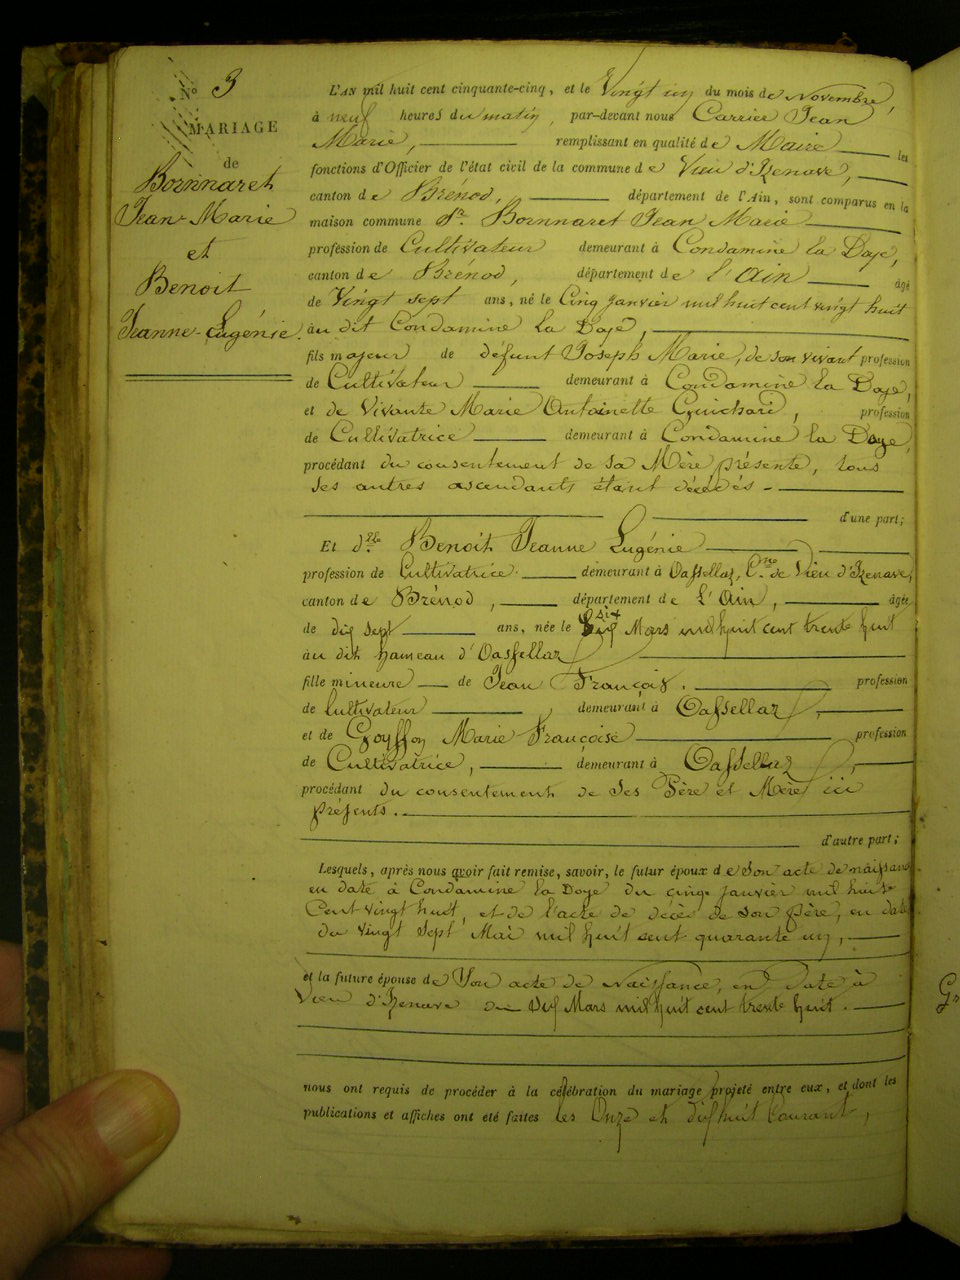 N° 3
MARIAGE
de
Bornnaret
Jean-Marie
et
Benoit
Jeanne-Eugénie.
L'AN mil huit cent cinquante-cinq, et le Vingt un du mois de Novembre,
à neuf heures du matin, par-devant nous Carrier Jean
Marie, remplissant en qualité de Maire les
fonctions d'Officier de l'état civil de la commune de Vieu d'Izenave,
canton de Brénod, département de l'Ain, sont comparus en la
maison commune Sr Bornnaret Jean Marie
profession de Cultivateur demeurant à Condamine la Doye,
canton de Brénod, département de l'Ain âgé
de Vingt sept ans, né le Cinq janvier mil huit cent vingt huit
au dit Condamine la Doye,
fils majeur de défunt Joseph Marie, de son vivant profession
de Cultivateur demeurant à Condamine la Doye,
et de Vivante Marie Antoinette Guichard, profession
de Cultivatrice demeurant à Condamine la Doye,
procédant du consentement de sa Mère présente, tous
ses autres ascendants étant décédés -
d'une part;
Et dlle Benoit Jeanne Eugénie
profession de Cultivatrice demeurant à Oassellaz, Cne de Vieu d'Izenave,
canton de Brénod, département de L'Ain, âgée
de dix sept ans, née le dix Mars mil huit cent trente huit
au dit hameau d'Oassellaz
fille mineure de Jean François. profession
de Cultivateur, demeurant à Oassellaz,
et de Goyffon Marie Françoise profession
de Cultivatrice, demeurant à Oassellaz,
procédant du consentement de ses Père et Mère ici
présents.
d'autre part;
Lesquels, après nous avoir fait remise, savoir, le futur époux de Son acte de naissance
en date à Condamine la Doye du cinq janvier mil huit
Cent vingt huit, et de l'acte de décès de son père, en date
du vingt sept Mai mil huit cent quarante un,
et la future épouse de Son acte de Naissance, en date à
Vieu d'Izenave du dix Mars mil huit cent trente huit.
nous ont requis de procéder à la célébration du mariage projeté entre eux, et dont les
publications et affiches ont été faites les Onze et dix huit Courant,